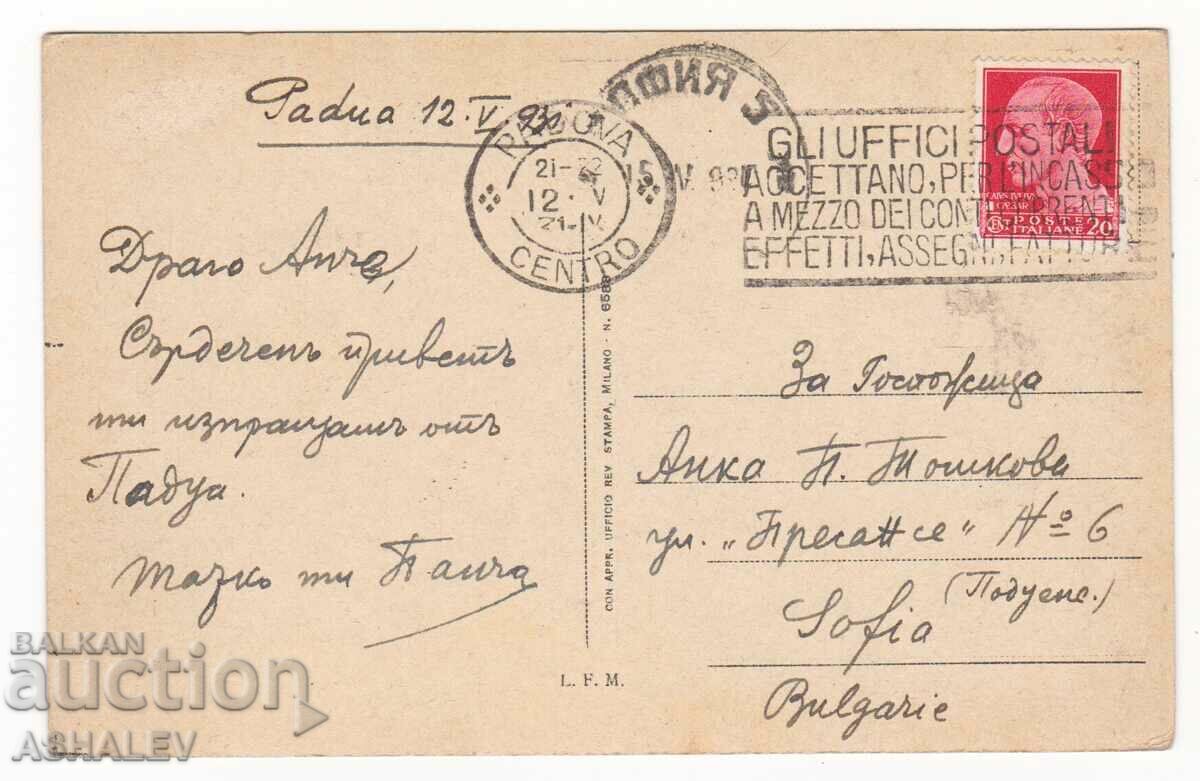 Padua 12.V.
ПАДOVA
PADOVA
21-22
12·V
CENTRO
СОФИЯ 5
GLI UFFICI POSTALI
ACCETTANO, PER L'INCASSO
A MEZZO DEI CONTI CORRENTI
EFFETTI, ASSEGNI, FATTURE
POSTE
ITALIANE 20
Драго Анче,
Сърдеченъ приветъ
ти изпращамъ отъ
Падуа.
татко ти Панчо
CON APPR. UFFICIO REV STAMPA, MILANO - N. 6589
L. F. M.
За Госпожица
Анка П. Тошкова
ул. „Пресансе" № 6
(Подуене.)
Sofia
Bulgarie
BALKAN
auction
ASHALEV